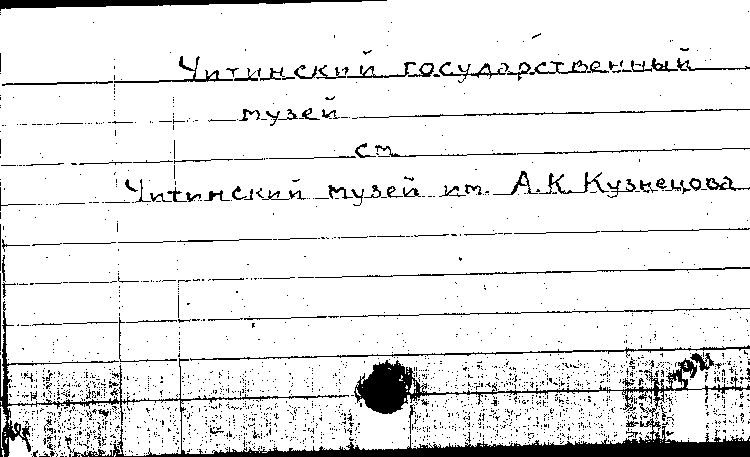 Читинский государственный
музей
см.
Читинский музей им. А.К. Кузнецова